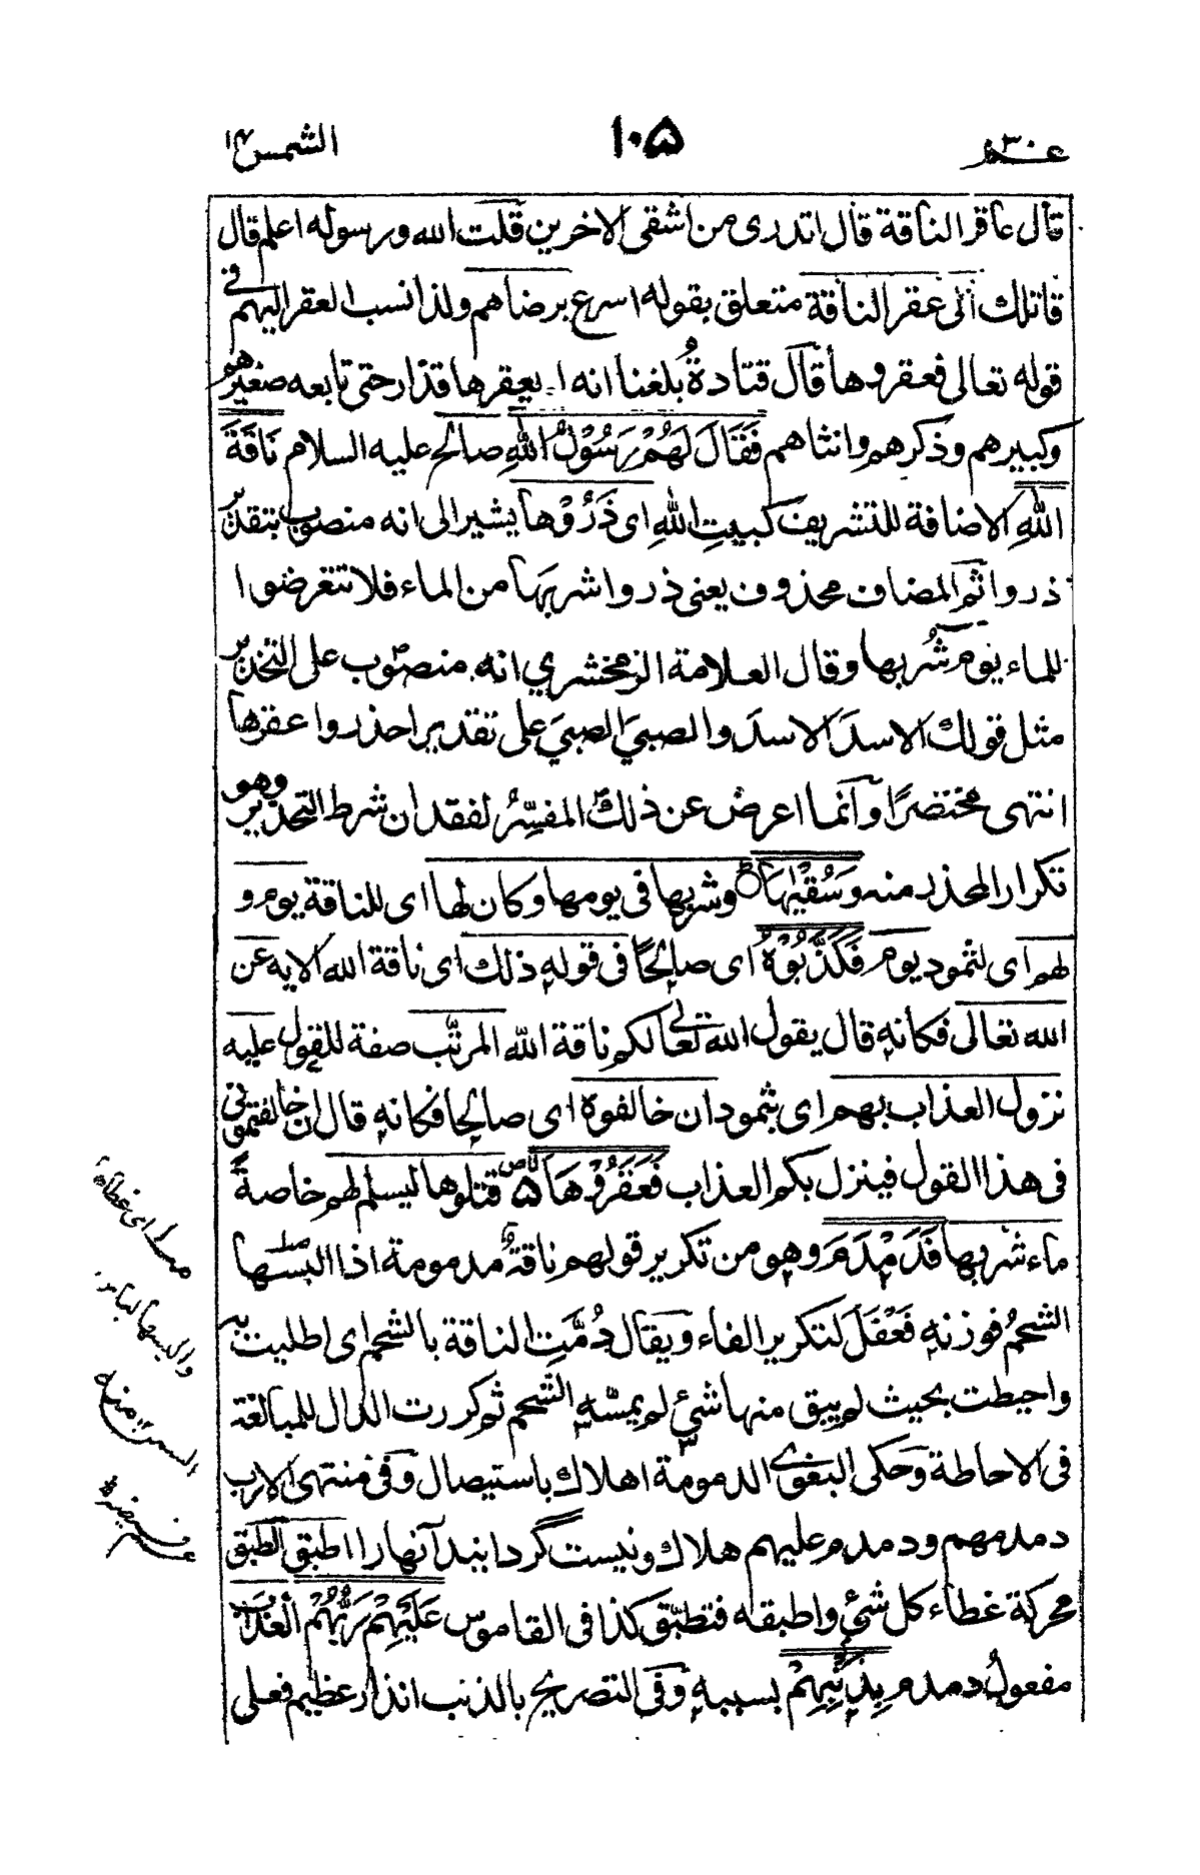 عم٣٠
١٠٥
الشمس
قال عاقر الناقة قال اتدرى من اشقى الاخرين قلت الله ورسوله اعلم قال
قاتلك الى عقر الناقة متعلق بقوله اسرع برضاهم ولذا نسب العقر اليهم فى
قوله تعالى فعقروها قال قتادةُ بلغنا انه لم يعقرها قذار حتى تابعه صغيرهم
وكبيرهم وذكرهم وانثاهم فَقَالَ لَهُمْ رَسُوْلُ اللّٰهِ صالح عليه السلام نَاقَةَ
اللّٰهِ الاضافة للتشريف كبيتِ اللّٰهِ اى ذَرُوْها يشير الى انه منصوب بتقدير
ذروا ثم المضاف محذوف يعنى ذروا شربها من الماء فلا تتعرضوا
للماء يوم شُربها وقال العلامة الزمخشري انه منصوب على التحذير
مثل قولك الاسدَ الاسدَ والصبيَ الصبيَ على تقدير احذروا عقرها
انتهى مختصرًا وانما اعرض عن ذلك المفسِّرُ لفقدان شرط التحذير وهو
تكرار المحذر منه وَسُقْيٰهَا وشربها فى يومها وكان لها اى للناقة يوم و
لهم اى لثمود يوم فَكَذَّبُوْهُ اى صالحًا فى قوله ذلك اى ناقة الله الاية عن
الله تعالى فكانه قال يقول الله تعالى لكم ناقة الله المرتَّب صفة للقول عليه
نزول العذاب بهم اى بثمود ان خالفوه اى صالحا فكانه قال ان خالفتمونى
فى هذا القول فينزل بكم العذاب فَعَقَرُوْهَا قتلوها ليسلم لهم خاصةً
ماء شربها فَدَمْدَمَ وهو من تكرير قولهم ناقة مدمومة اذا البسها
الشحمُ فوزنه فَعْفَلَ لتكرير الفاء ويقال دُمَّتِ الناقة بالشحم اى اطليت به
واحيطت بحيث لم يبق منها شئ لم يمسّه الشحم ثم كررت الدال للمبالغة
فى الاحاطة وحكى البغوى الدمومة اهلاك باستيصال وفى منتهى الارب
دمدمهم ودمدم عليهم هلاك ونيست گردانيد آنهارا اطبق الطبق
محركة غطاء كل شئ واطبقه فتطبّق كذا فى القاموس عَلَيْهِمْ رَبُّهُمْ العذاب
مفعولُ دمدم بِذَنْبِهِمْ بسببه وفى التصريح بالذنب انذار عظيم فعلى